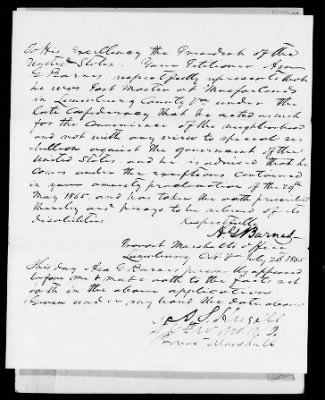 To His Excellency the President of the
United States. Your Petitioner Asa
G Barnes respectfully represents that
he was Post Master at Macfarlands
in Lunenburg County Va under the
late Confederacy that he acted as such
for the convenience of the neighborhood
and not with any view to special re-
bellion against the government of the
United States and he is advised that he
comes under the exceptions contained
in your amnesty proclamation of the 29th
May 1865 and has taken the oath prescribed
thereby and prays to be relieved of its
disabilities
Respectfully
A G Barnes
Provost Marshalls office
Lunenburg Ct H Va July 28 1865
This day Asa G Barnes personally appeared
before me & made oath to the facts set
forth in the above application
Given under my hand the date above
A. S.
Provost Marshall